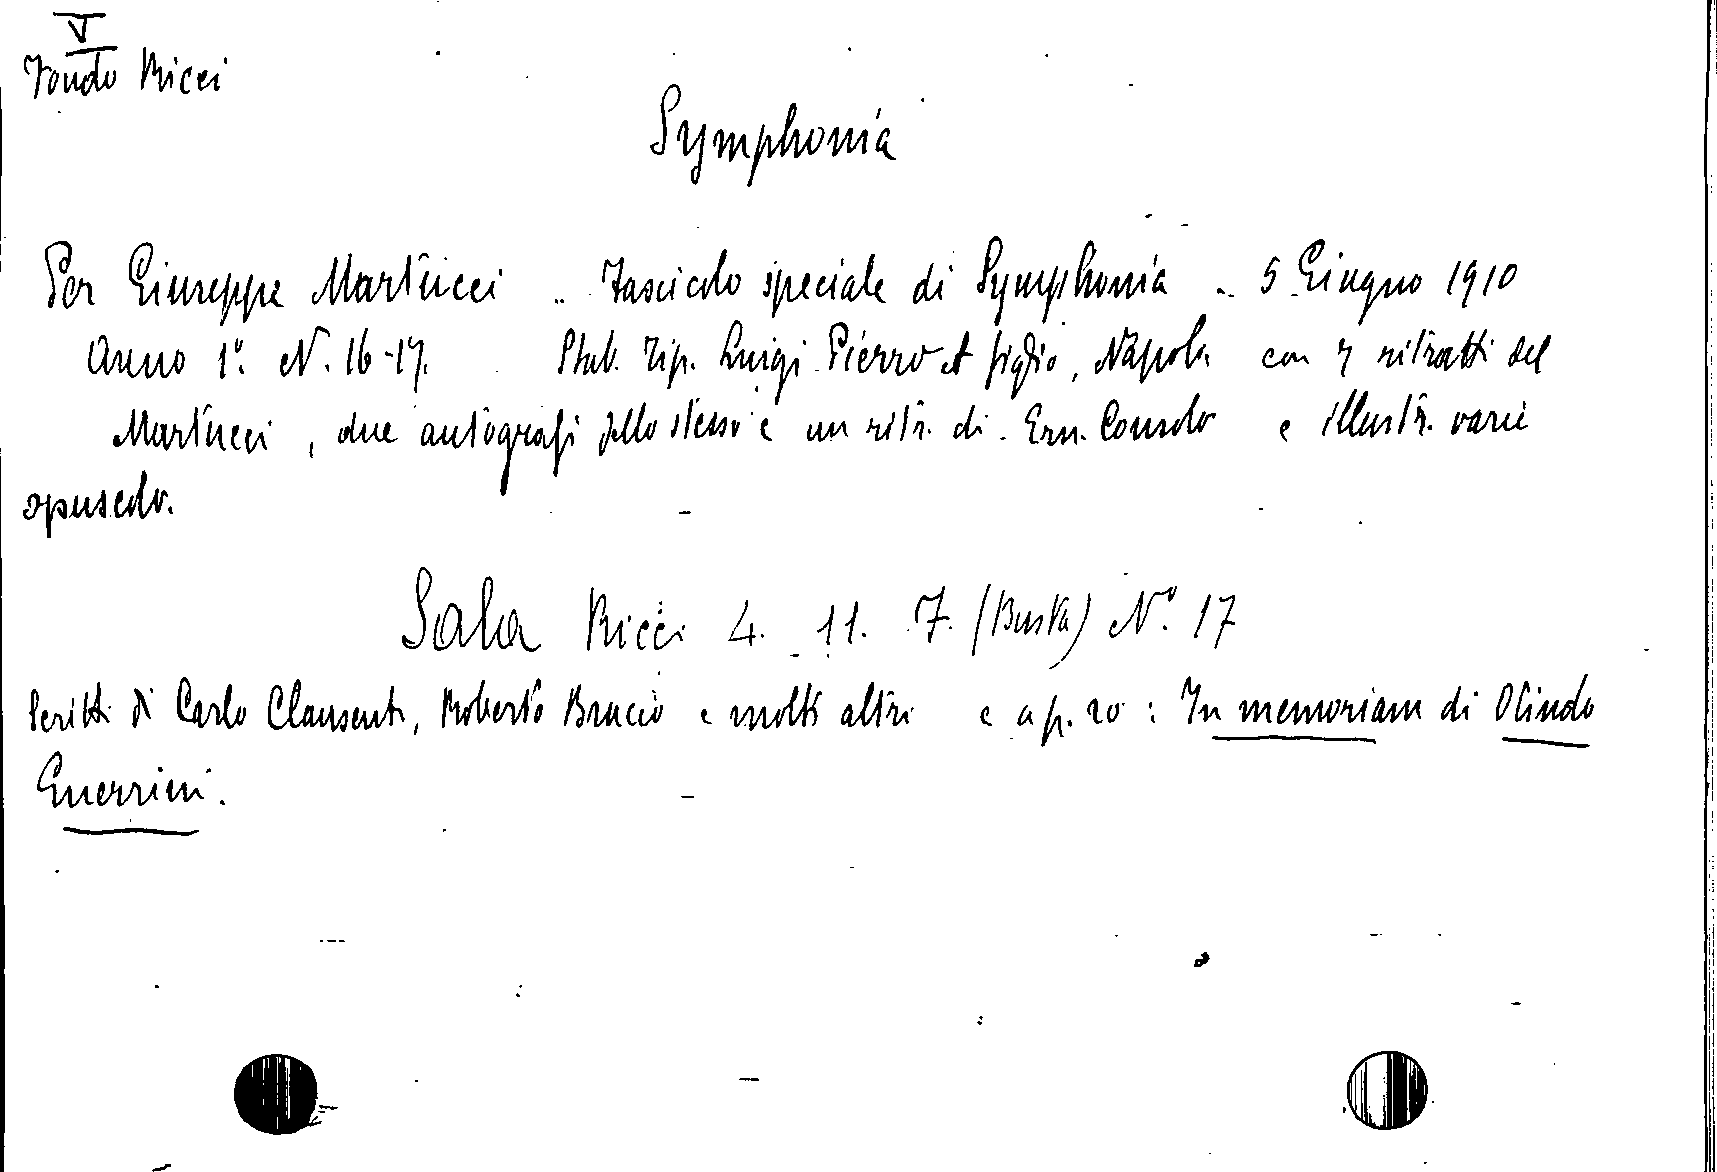 V
Fondo Ricci
Symphonia
Per Giuseppe Martucci .. Fascicolo speciale di Symphonia .. 5 Giugno 1910
Anno 1º. N. 16-17. Stab. Tip. Luigi Pierro et figlio, Napoli con 7 ritratti del
Martucci, due autografi dello stesso e un ritr. di Ern. Consolo e illustr. varie
opuscolo.
Sala Ricci 4. 11. 7. (Busta) Nº. 17
Scritti di Carlo Clausetti, Roberto Bracco e molti altri e a p. 20: In memoriam di Olindo
Guerrini.